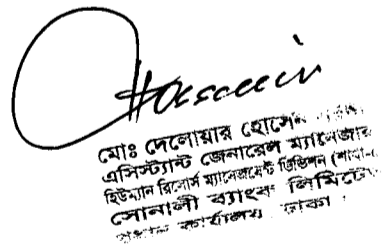 Hossain
মোঃ দেলোয়ার হোসেন
এসিস্ট্যান্ট জেনারেল ম্যানেজার
হিউম্যান রিসোর্স ম্যানেজমেন্ট ডিভিশন
সোনালী ব্যাংক লিমিটেড
প্রধান কার্যালয় ঢাকা